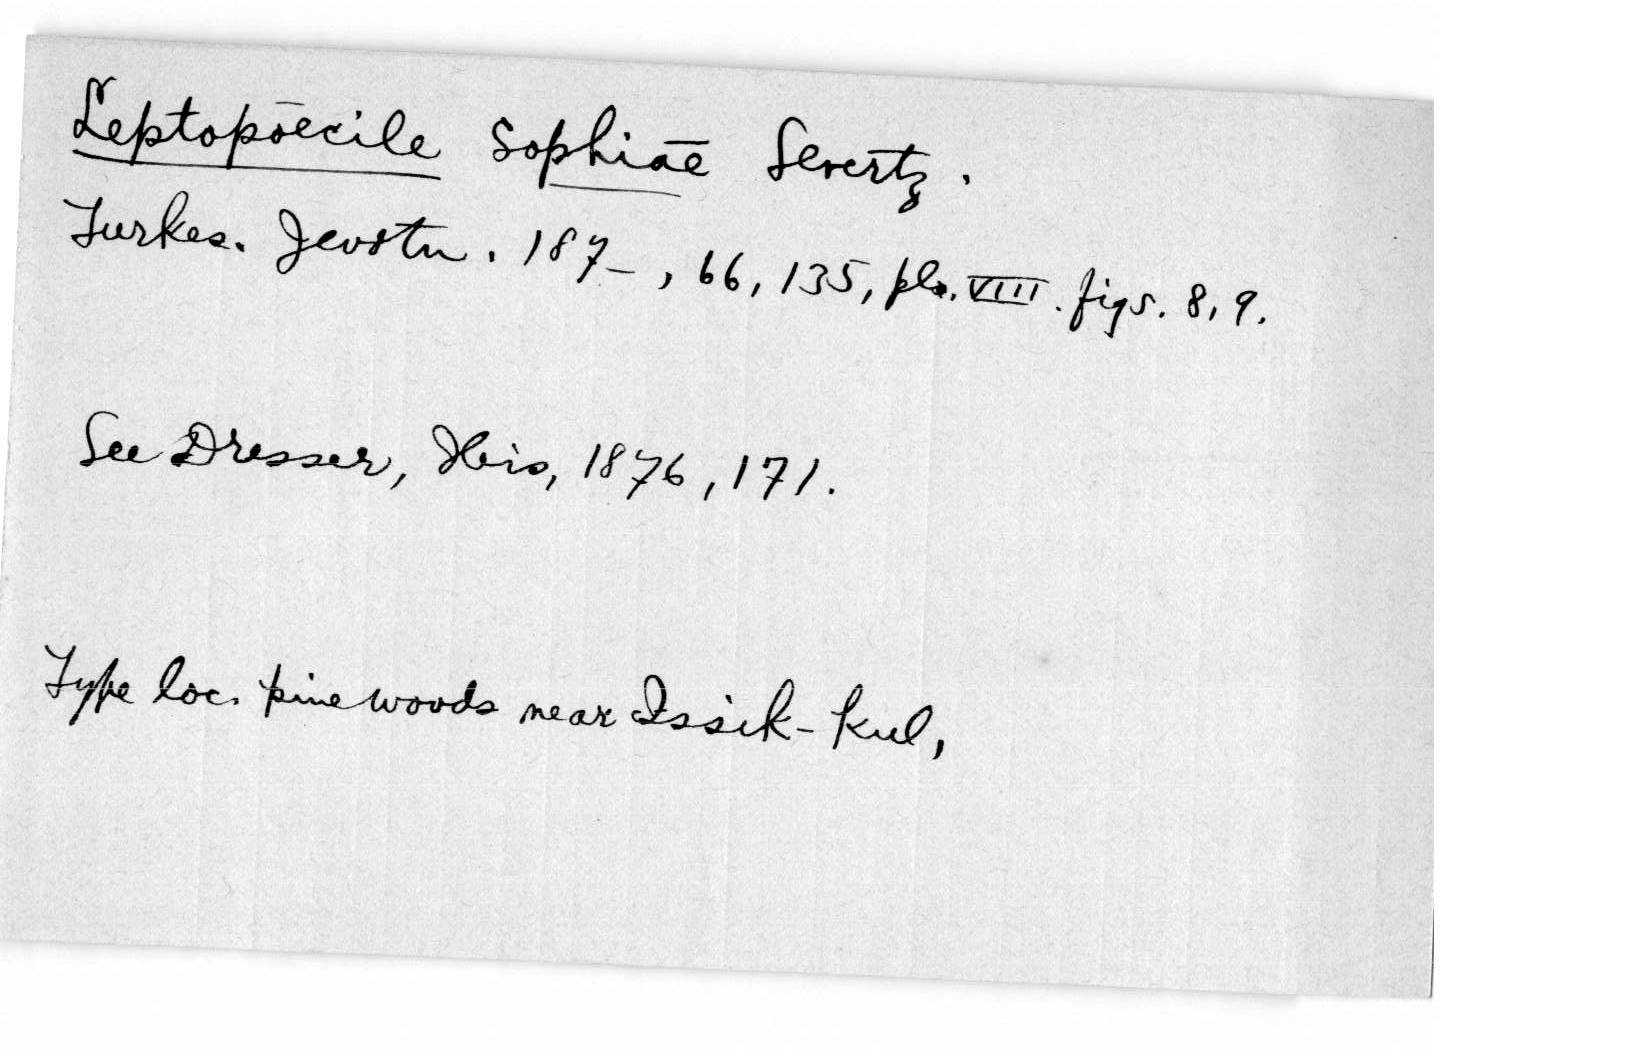 Leptopoecile Sophiae Severtz.
Turkes. Jevotn. 187_, 66, 135, pls. VIII. figs. 8, 9.
See Dresser, Ibis, 1876, 171.
Type loc. pine woods near Issik-Kul,